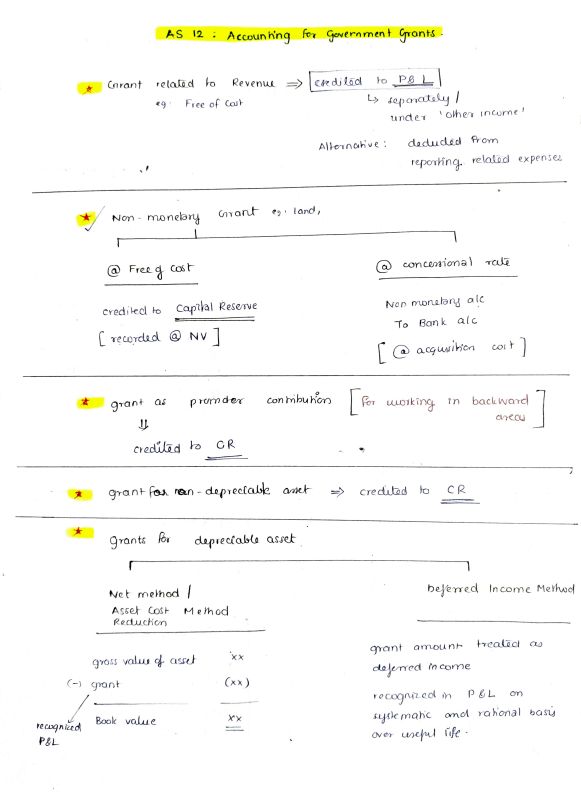 AS 12 : Accounting for Government Grants.
Grant related to Revenue ⇒ credited to P&L
eg: Free of Cost
↳ separately /
under 'other income'
Alternative: deduced from
reporting related expenses
Non-monetary Grant eg: land,
@ Free of Cost
@ concessional rate
credited to Capital Reserve
[recorded @ NV]
Non monetary a/c
To Bank a/c
[@ acquisition cost]
grant as promoter contribution [for working in backward areas]
⇓
credited to CR
grant for non-depreciable asset ⇒ credited to CR
grants for depreciable asset
Net method /
Asset Cost Method
Reduction
Deferred Income Method
gross value of asset xx
(-) grant (xx)
Book value xx
recognized
P&L
grant amount treated as
deferred income
recognized in P&L on
systematic and rational basis
over useful life.